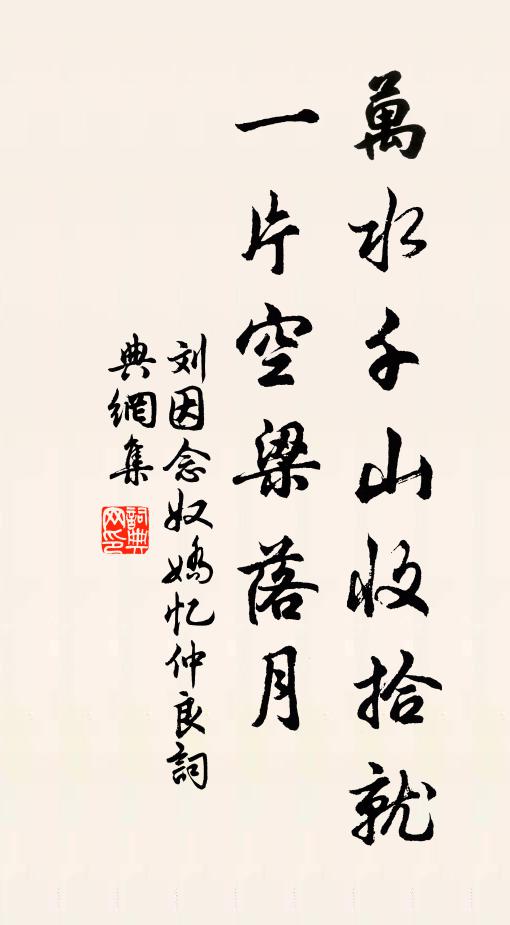 萬水千山收拾就
一片空梁落月
刘因念奴嬌忆仲良詞
典網集
詞典网印